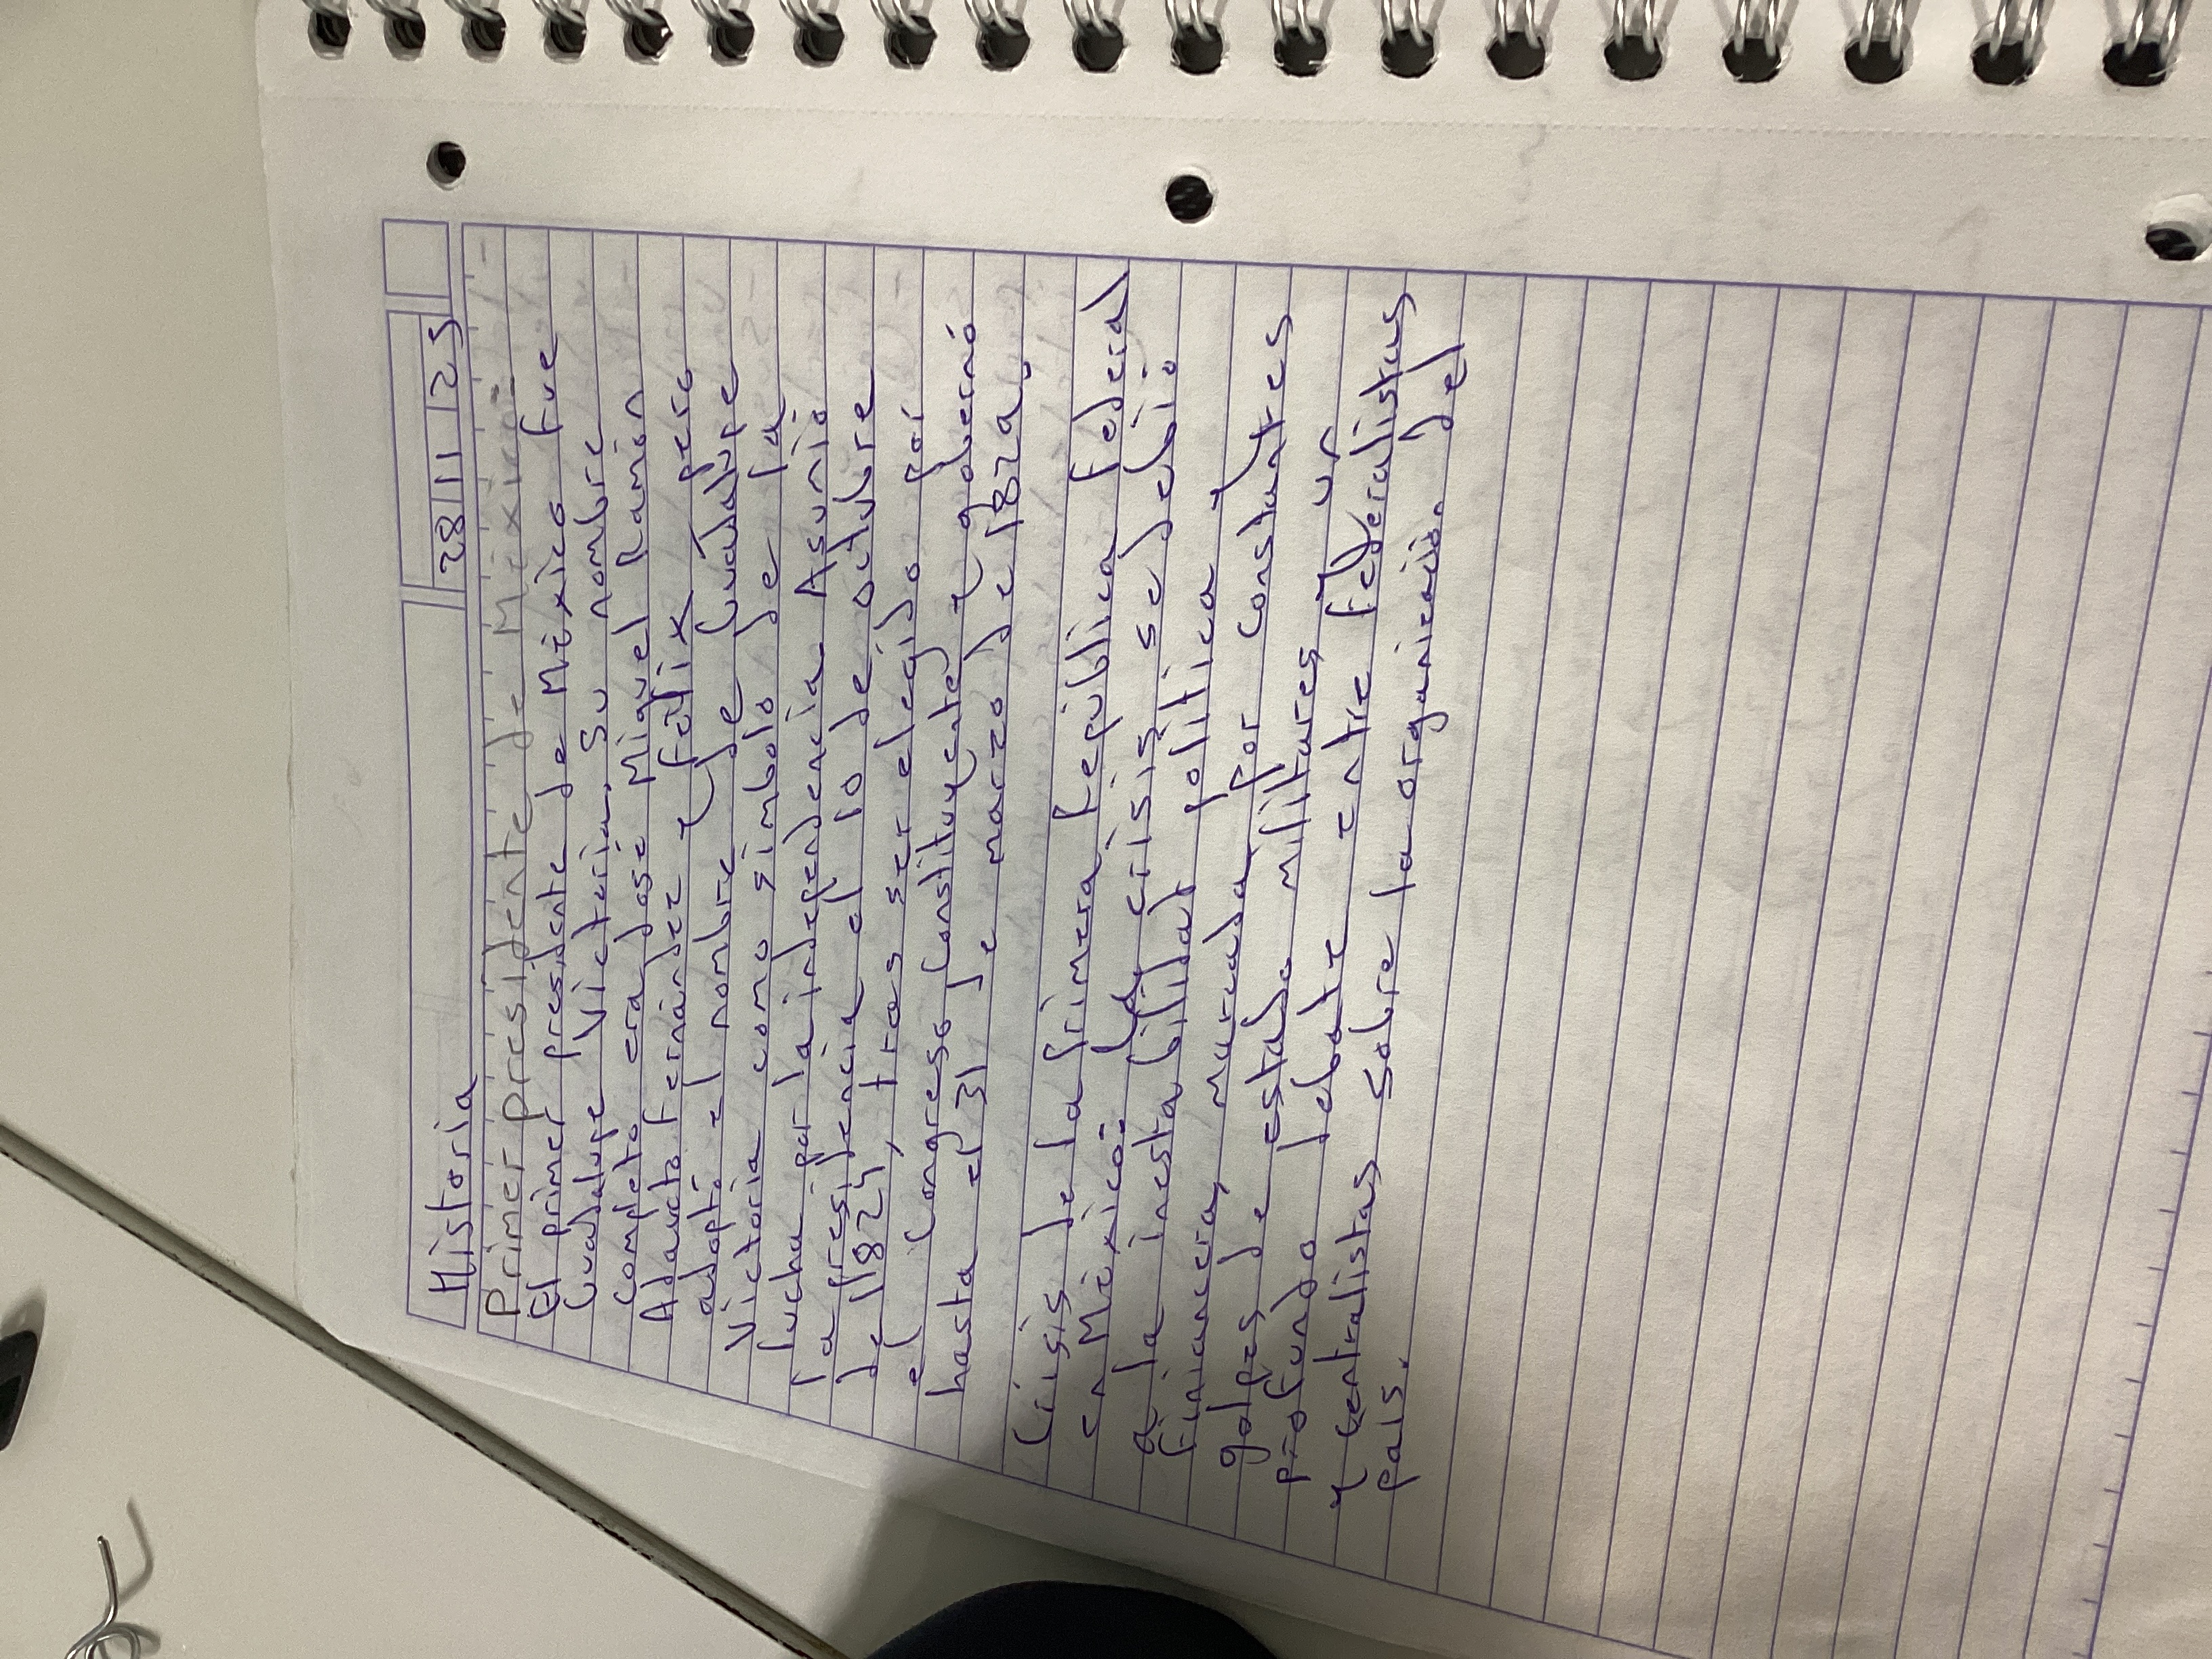 Historia
28/11/25
Primer presidente de México:
El primer presidente de México fue
Guadalupe Victoria. Su nombre
completo era José Miguel Ramón
Adaucto Fernández y Félix pero
adoptó el nombre de Guadalupe
Victoria como símbolo de la
lucha por la independencia Asumio
la presidencia el 10 de octubre
de 1824, tras ser elegido por
el Congreso Constituyente, y gobernó
hasta el 31 de marzo de 1829.
Crisis de la primera república federal
en México: La crisis se debió
a la inestabilidad política y
financiera, marcada por constantes
golpes de estado militares y un
profundo debate entre federalistas
y centralistas sobre la organización del
país.